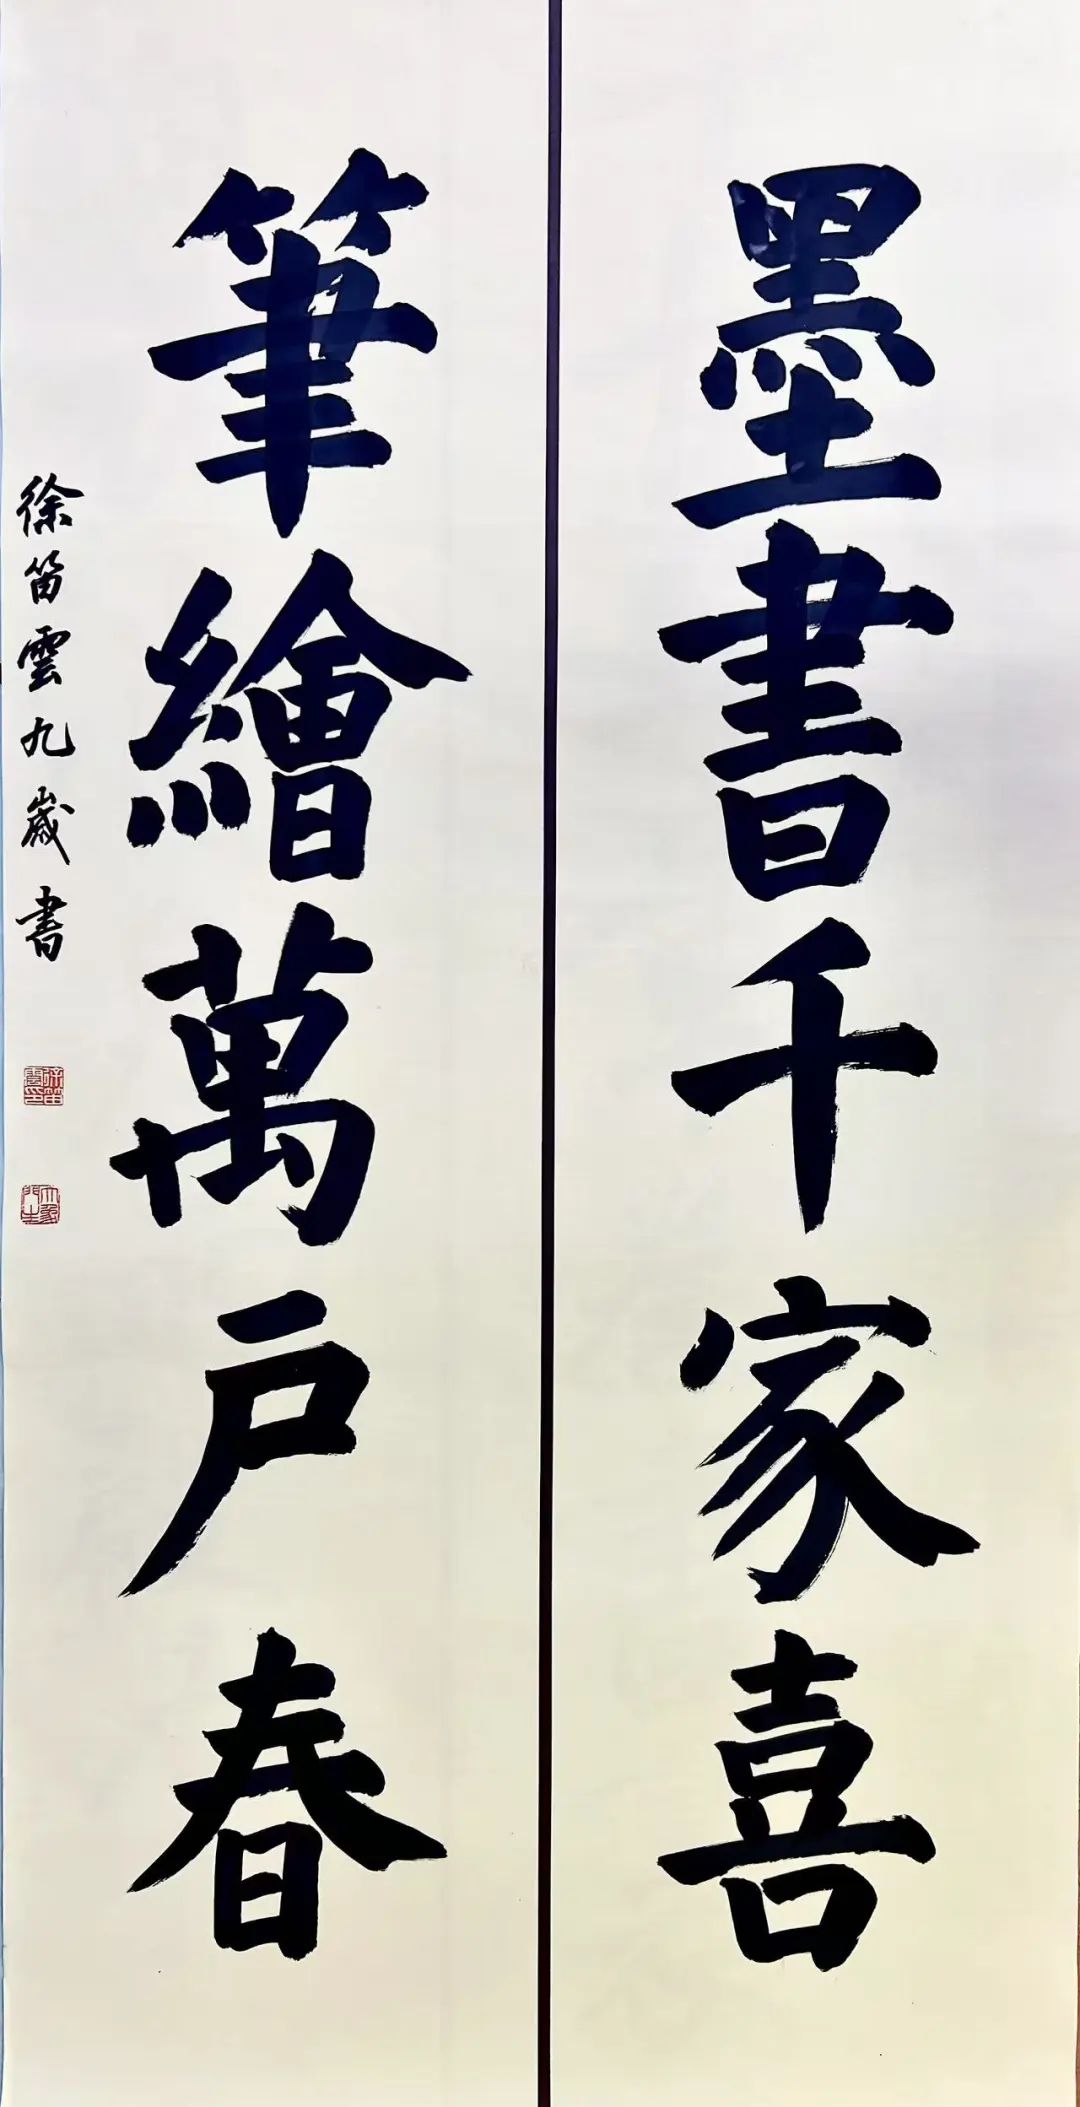 墨書千家喜
筆繪萬戶春
徐笛雲九歲書
徐笛雲印